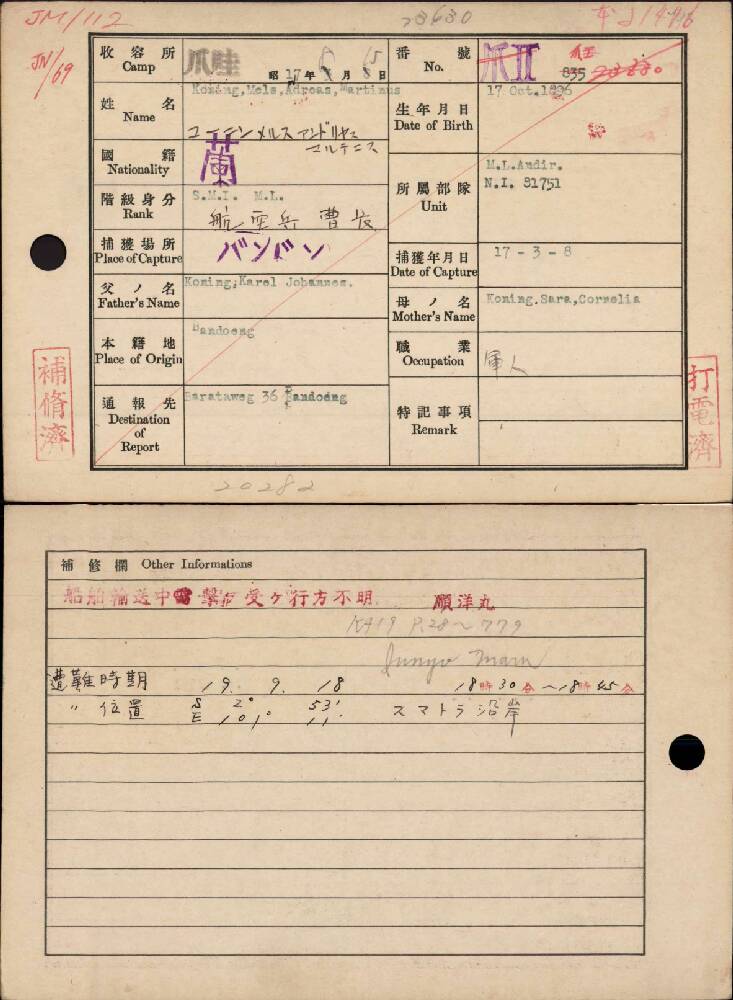 JM/112
23630
JN/69
收容所 Camp 爪哇 昭17年8月15日
番號 No. 爪II 爪II 835
姓名 Name Koning,Mels,Adpoas,Martinus
コーニンメルスアンドリヤス
マルテニス
生年月日 Date of Birth 17 Oct.1896
國籍 Nationality 蘭
所属部隊 Unit M.L.Andir.
N.I. 81751
階級身分 Rank S.M.I. M.L.
航空兵曹長
捕獲場所 Place of Capture バンドン
捕獲年月日 Date of Capture 17 - 3 - 8
父ノ名 Father's Name Koning;Karel Johannes.
母ノ名 Mother's Name Koning.Sara,Cornelia
本籍地 Place of Origin Bandoeng
職業 Occupation 軍人
通報先 Destination of Report Barataweg 36 Bandoeng
特記事項 Remark
補脩濟
打電濟
20282
補修欄 Other Informations
船舶輸送中雷撃ヲ受ケ行方不明 順洋丸
K419 P.28~779
Junyo Maru
遭難時期 19. 9. 18 18時30分~18時45分
〃 位置 S 2° 53′ スマトラ沿岸
E 101° 11′